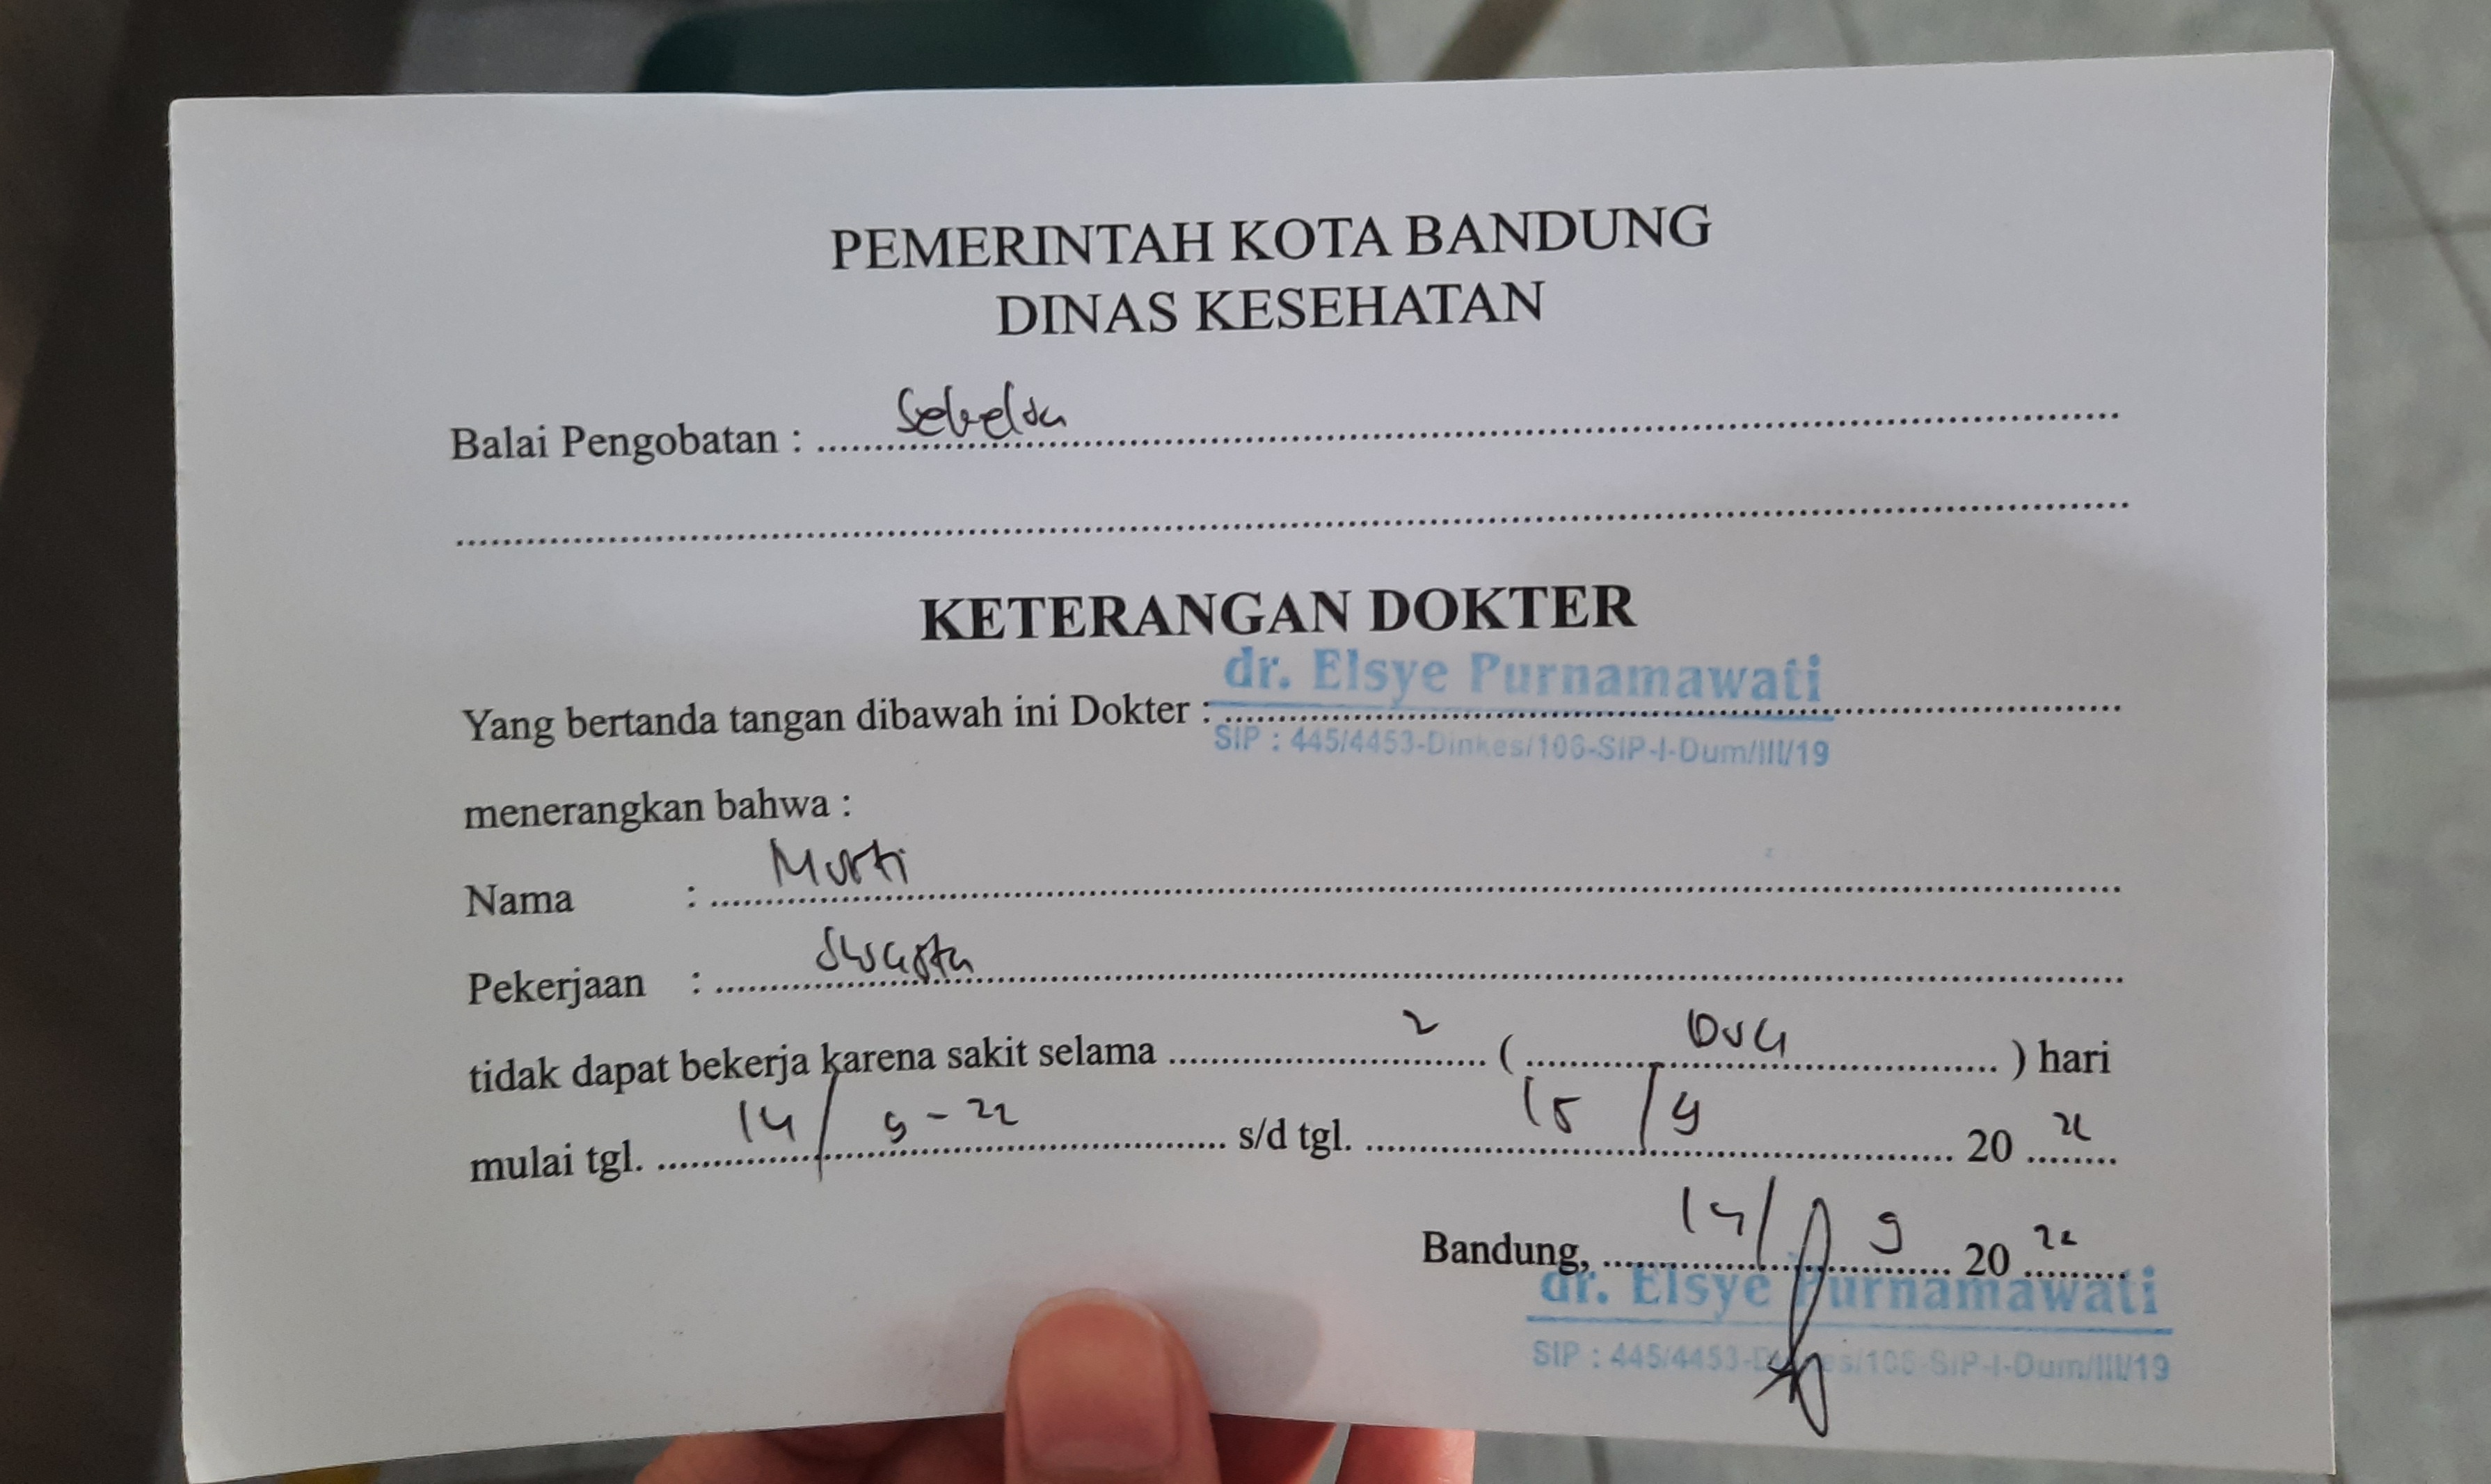 PEMERINTAH KOTA BANDUNG
DINAS KESEHATAN
Balai Pengobatan :
KETERANGAN DOKTER
dr. Elsye Purnamawati
Yang bertanda tangan dibawah ini Dokter :
SIP : 445/4453-Dinkes/106-SIP-I-Dum/III/19
menerangkan bahwa :
Nama : Murti
Pekerjaan : Swasta
tidak dapat bekerja karena sakit selama 2 ( Dua ) hari
mulai tgl. 14/ 9 - 22 s/d tgl. 15 / 9 20 22
Bandung, 14/ 9 20 22
dr. Elsye Purnamawati
SIP : 445/4453-Dinkes/106-SIP-I-Dum/III/19